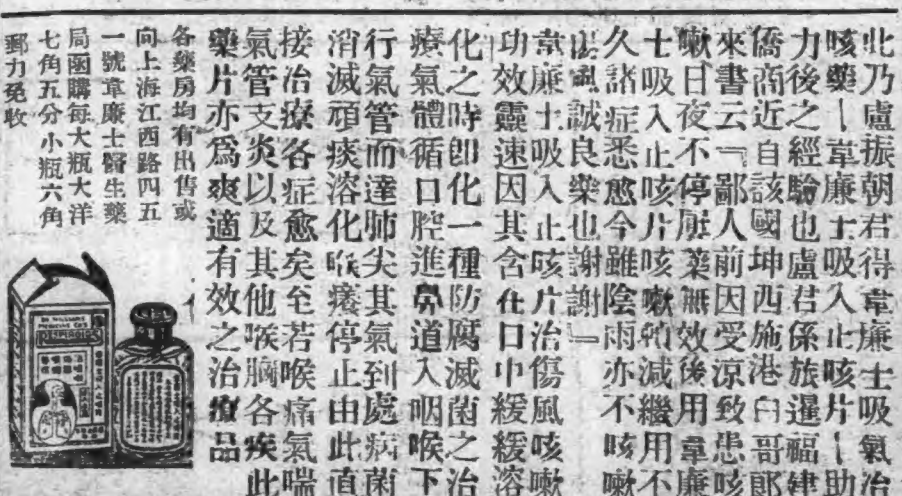 此乃盧振朝君得韋廉士吸氣治
咳藥｜韋廉士吸入止咳片｜助
力後之經驗也盧君係旅暹福建
僑商近自該國坤西施港白哥郎
來書云『鄙人前因受凉致患咳
嗽日夜不停屢藥無效後用韋廉
士吸入止咳片咳嗽頓減繼用不
久諸症悉愈今雖陰雨亦不咳嗽
誠良藥也謝謝』
韋廉士吸入止咳片治傷風咳嗽
功效靈速因其含在口中緩緩溶
化之時卽化一種防腐滅菌之治
療氣體循口腔進鼻道入咽喉下
行氣管而達肺尖其氣到處病菌
消滅頑痰溶化喉癢停止由此直
接治療各症愈矣至若喉痛氣喘
氣管支炎以及其他喉胸各疾此
藥片亦爲爽適有效之治療品
各藥房均有出售或
向上海江西路四五
一號韋廉士醫生藥
局函購每大瓶大洋
七角五分小瓶六角
郵力免收
DR WILLIAMS
MEDICINE CO'S